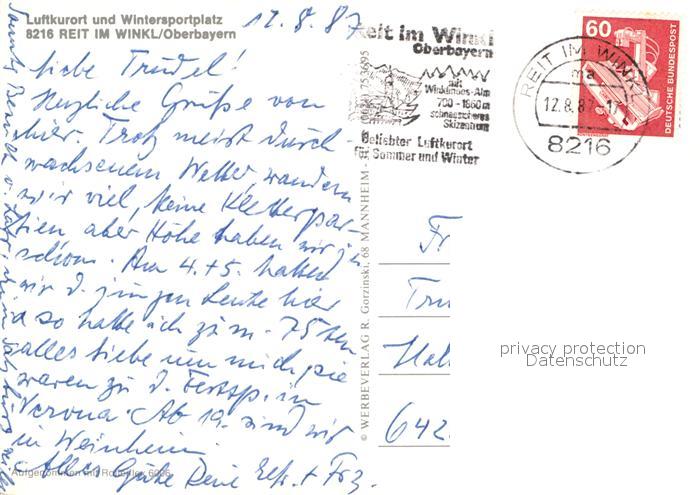 Luftkurort und Wintersportplatz
8216 REIT IM WINKL/Oberbayern
12.8.87
Liebe Trudel!
Herzliche Grüße von
hier. Trotz meist durch-
wachsenem Wetter, wandern
wir viel, keine Kletterpar-
tien aber Höhe haben wir ja
schon. Am 4.+5. hatten
wir d. jungen Leute hier
so hatte ich zum 75sten
alles Liebe um mich, sie
waren zu d. Festsp. in
Verona. Ab 19. sind wir
in Weinheim.
Alles Gute Deine + Frz.
Aufgenommen mit
© WERBEVERLAG R. Gorzinski, 68 MANNHEIM-
Reit im Winkl
Oberbayern
mit
Winklmoos-Alm
700-1860m
schneesicheres
Skizentrum
Beliebter Luftkurort
für Sommer und Winter
REIT IM WINKL
ma
12.8.87
8216
60
DEUTSCHE BUNDESPOST
Fr
Tru
Hal
642
privacy protection
Datenschutz